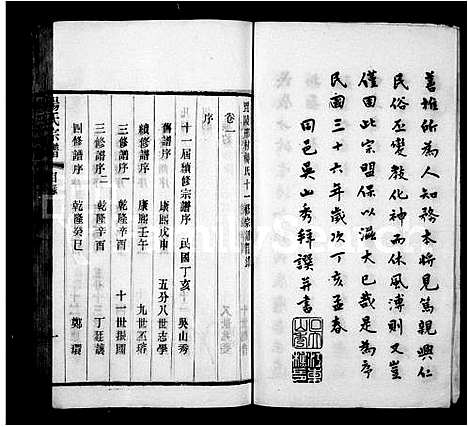 善堆所為人知務本將見篤親興仁
民俗丕變教化神而休風溥則又豈
僅因此宗盟保以滋大已哉是為序
民國三十六年歲次丁亥孟春
同邑吳山秀拜譔并書
卷一
序
十一屆續修宗譜序 民國丁亥 吳山秀
舊譜序 康熙戊申 五分八世志學
續修譜序 康熙壬午 九世丕璿
三修譜序 乾隆辛酉 十一世振國
三修譜序二 乾隆辛酉 丁廷讓
四修譜序 乾隆癸巳 鄭環
楊氏宗譜